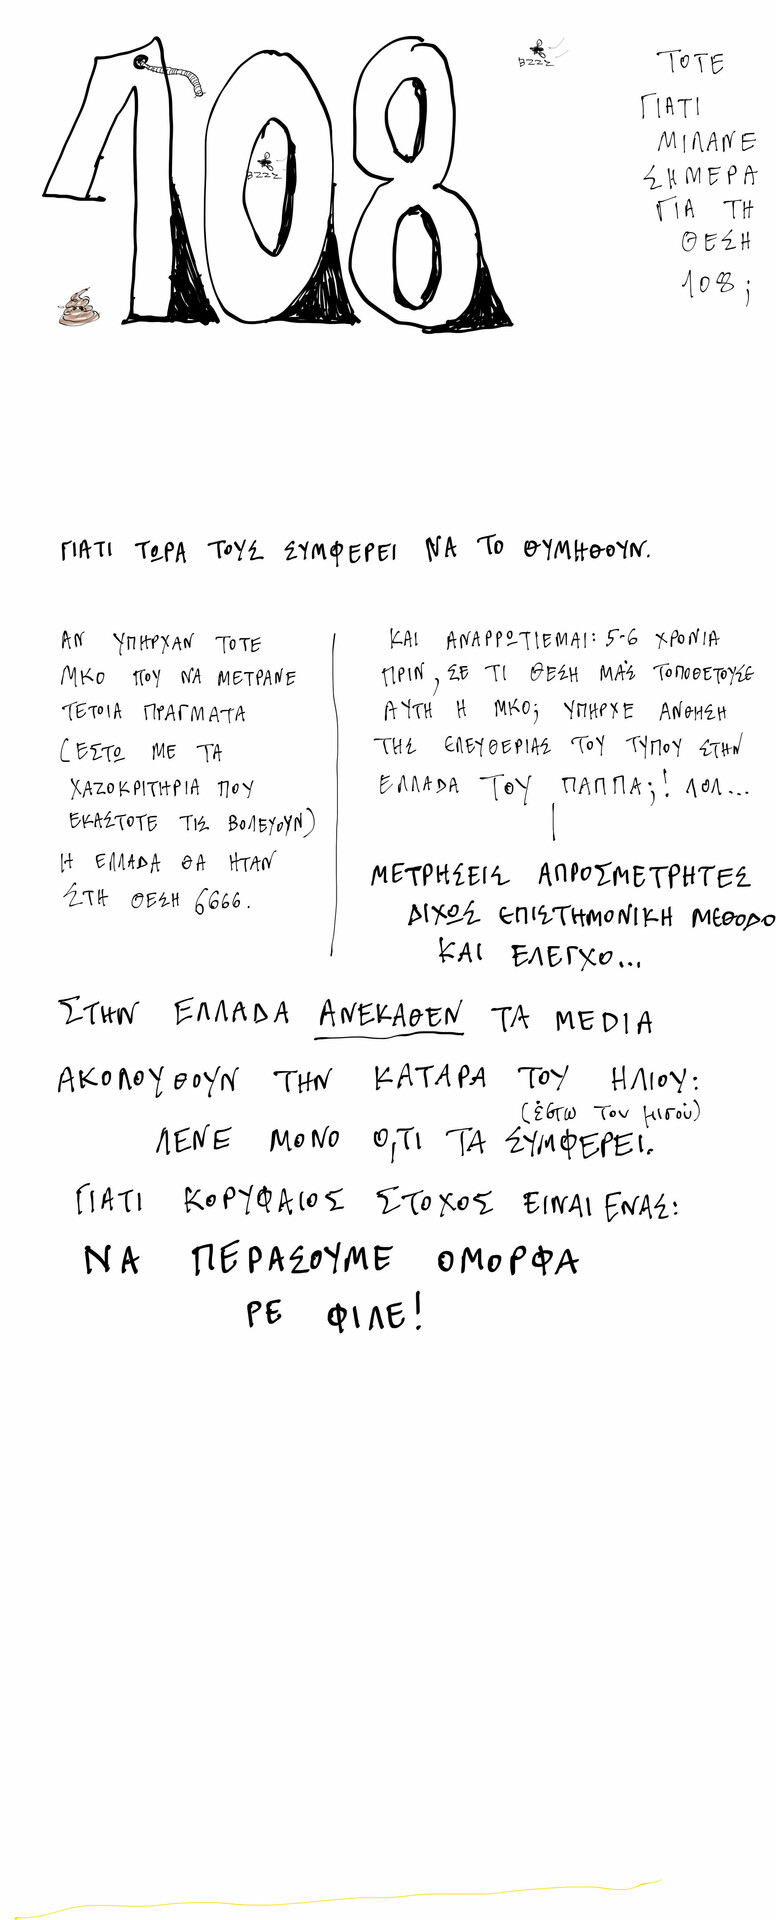 108
BZZZ
BZZZ
ΤΟΤΕ
ΓΙΑΤΙ
ΜΙΛΑΝΕ
ΣΗΜΕΡΑ
ΓΙΑ ΤΗ
ΘΕΣΗ
108;
ΓΙΑΤΙ ΤΩΡΑ ΤΟΥΣ ΣΥΜΦΕΡΕΙ ΝΑ ΤΟ ΘΥΜΗΘΟΥΝ.
ΑΝ ΥΠΗΡΧΑΝ ΤΟΤΕ
ΜΚΟ ΠΟΥ ΝΑ ΜΕΤΡΑΝΕ
ΤΕΤΟΙΑ ΠΡΑΓΜΑΤΑ
(ΕΣΤΩ ΜΕ ΤΑ
ΧΑΖΟΚΡΙΤΗΡΙΑ ΠΟΥ
ΕΚΑΣΤΟΤΕ ΤΙΣ ΒΟΛΕΥΟΥΝ)
Η ΕΛΛΑΔΑ ΘΑ ΗΤΑΝ
ΣΤΗ ΘΕΣΗ 6666.
ΚΑΙ ΑΝΑΡΡΩΤΙΕΜΑΙ: 5-6 ΧΡΟΝΙΑ
ΠΡΙΝ, ΣΕ ΤΙ ΘΕΣΗ ΜΑΣ ΤΟΠΟΘΕΤΟΥΣΕ
ΑΥΤΗ Η ΜΚΟ; ΥΠΗΡΧΕ ΑΝΘΗΣΗ
ΤΗΣ ΕΛΕΥΘΕΡΙΑΣ ΤΟΥ ΤΥΠΟΥ ΣΤΗΝ
ΕΛΛΑΔΑ ΤΟΥ ΠΑΠΠΑ;! ΛΟΛ...
ΜΕΤΡΗΣΕΙΣ ΑΠΡΟΣΜΕΤΡΗΤΕΣ
ΔΙΧΩΣ ΕΠΙΣΤΗΜΟΝΙΚΗ ΜΕΘΟΔΟ
ΚΑΙ ΕΛΕΓΧΟ...
ΣΤΗΝ ΕΛΛΑΔΑ ΑΝΕΚΑΘΕΝ ΤΑ MEDIA
ΑΚΟΛΟΥΘΟΥΝ ΤΗΝ ΚΑΤΑΡΑ ΤΟΥ ΗΛΙΟΥ:
(έστω του μισού)
ΛΕΝΕ ΜΟΝΟ Ο,ΤΙ ΤΑ ΣΥΜΦΕΡΕΙ.
ΓΙΑΤΙ ΚΟΡΥΦΑΙΟΣ ΣΤΟΧΟΣ ΕΙΝΑΙ ΕΝΑΣ:
ΝΑ ΠΕΡΑΣΟΥΜΕ ΟΜΟΡΦΑ
ΡΕ ΦΙΛΕ!